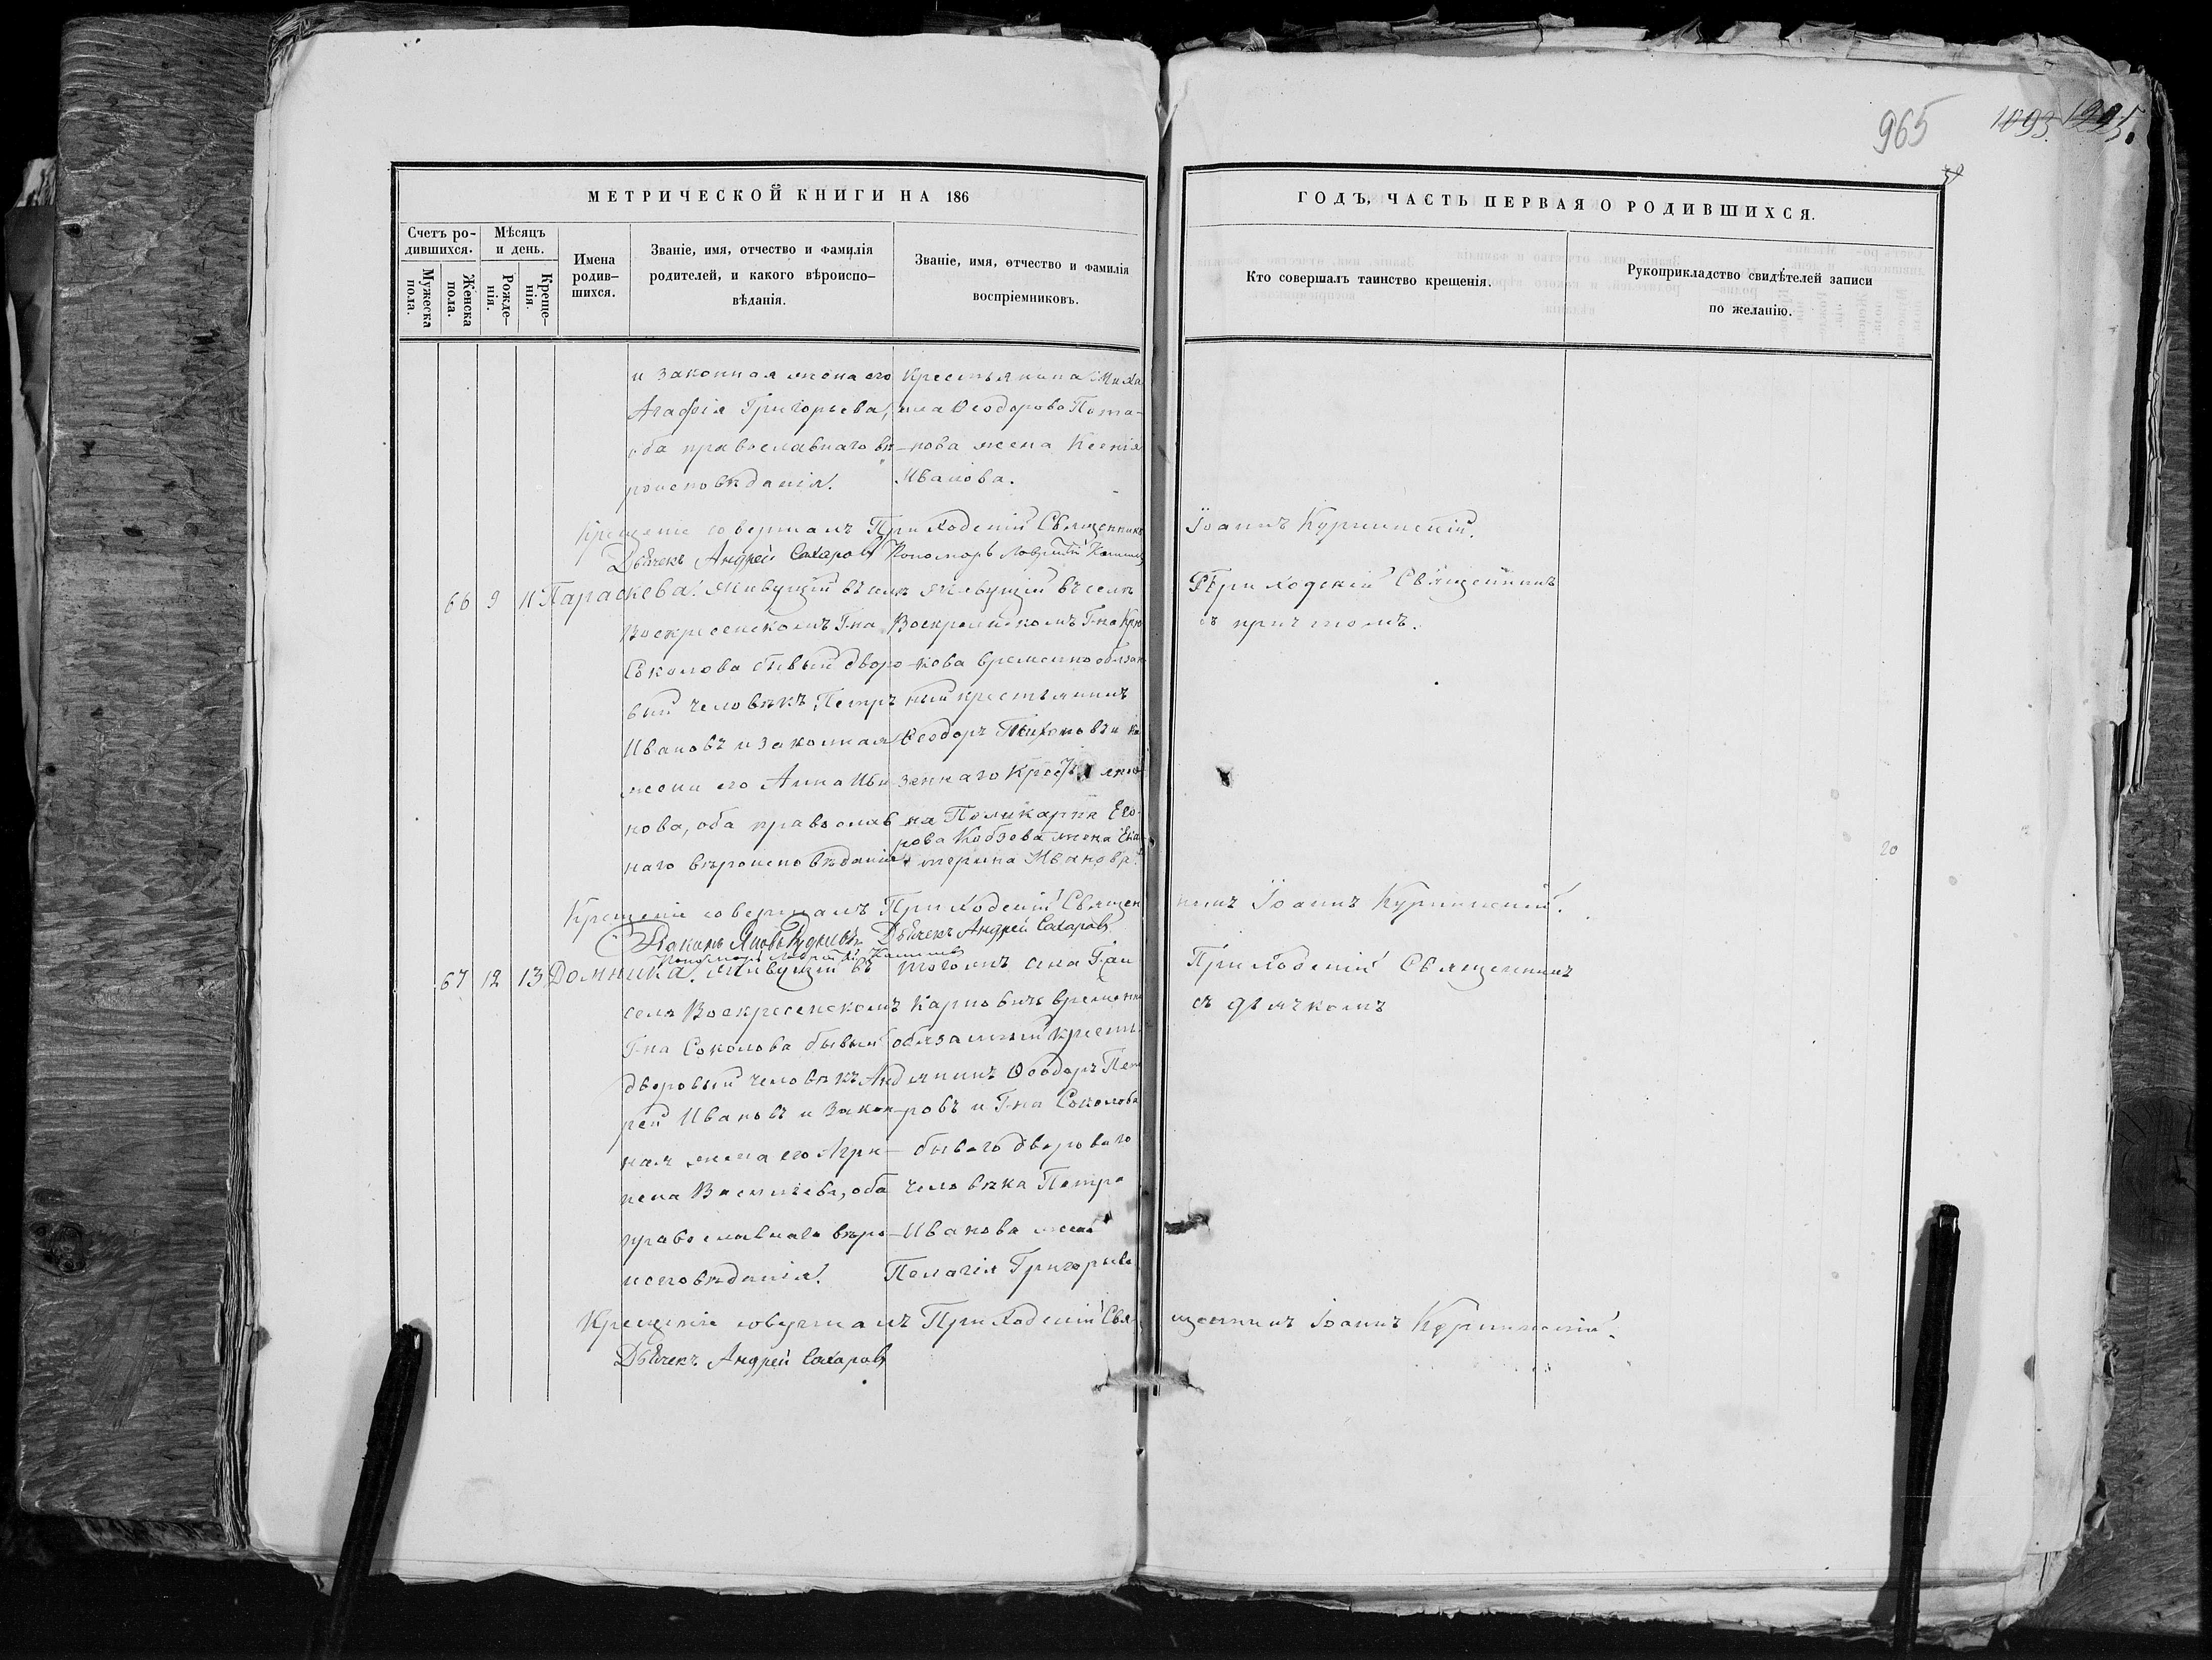 965 1093. 1225.
МЕТРИЧЕСКОЙ КНИГИ НА 186
ГОДЪ, ЧАСТЬ ПЕРВАЯ О РОДИВШИХСЯ.
Счетъ ро-
дившихся.
Мужеска
пола.
Женска
пола.
Мѣсяцъ
и день.
Рожде-
нія.
Креще-
нія.
Имена
родив-
шихся.
Званіе, имя, отчество и фамилія
родителей, и какого вѣроиспо-
вѣданія.
Званіе, имя, отчество и фамилія
воспріемниковъ.
Кто совершалъ таинство крещенія.
Рукоприкладство свидѣтелей записи
по желанію.
и законная жена его
Агафія Григорьева,
оба православнаго вѣ
роисповѣданія.
Крестьянина Миха
ила Ѳеодорова Пота-
-пова жена Ксенія
Иванова.
Крещеніе совершалъ Приходскій Священникъ Іоаннъ
Дьячекъ Андрей Сахаровъ Пономарь
66 9 11 Параскева. Живущій въ селѣ
Воскресенскомъ Г-на
Соколова бывый дворо-
вый человѣкъ Петръ
Ивановъ и законная
жена его Анна Ива
нова, оба православ
наго вѣроисповѣданія.
Живущій въ селѣ
Воскресенскомъ Г-на Крю
кова временно обязан
ный крестьянинъ
Ѳеодоръ Тихоновъ и ка
зеннаго Крестьяни
на Поликарпа Его-
рова Кобзева жена Ека-
терина Иванова.
Приходскій Священникъ
съ причтомъ.
20
Крещеніе совершалъ Приходскій Священ никъ Іоаннъ
Діаконъ Яковъ Рудневъ Дьячекъ Андрей Сахаровъ
Пономарь
67 12 13 Домника. Живущій въ
селѣ Воскресенскомъ
Г-на Соколова бывый
дворовый человѣкъ Анд
рей Ивановъ и закон-
ная жена его Агри-
пена Васильева, оба
православнаго вѣро-
исповѣданія.
тогожъ села Г-жи
Карповичъ временно
обязанный кресть
янинъ Ѳеодоръ Пет
ровъ и Г-на Соколова
бываго двороваго
человѣка Петра
Иванова жена
Пелагія Григорьева
Приходскій Священникъ
съ дьячкомъ
Крещеніе совершалъ Приходскій Свя щенникъ Іоаннъ
Дьячекъ Андрей Сахаровъ